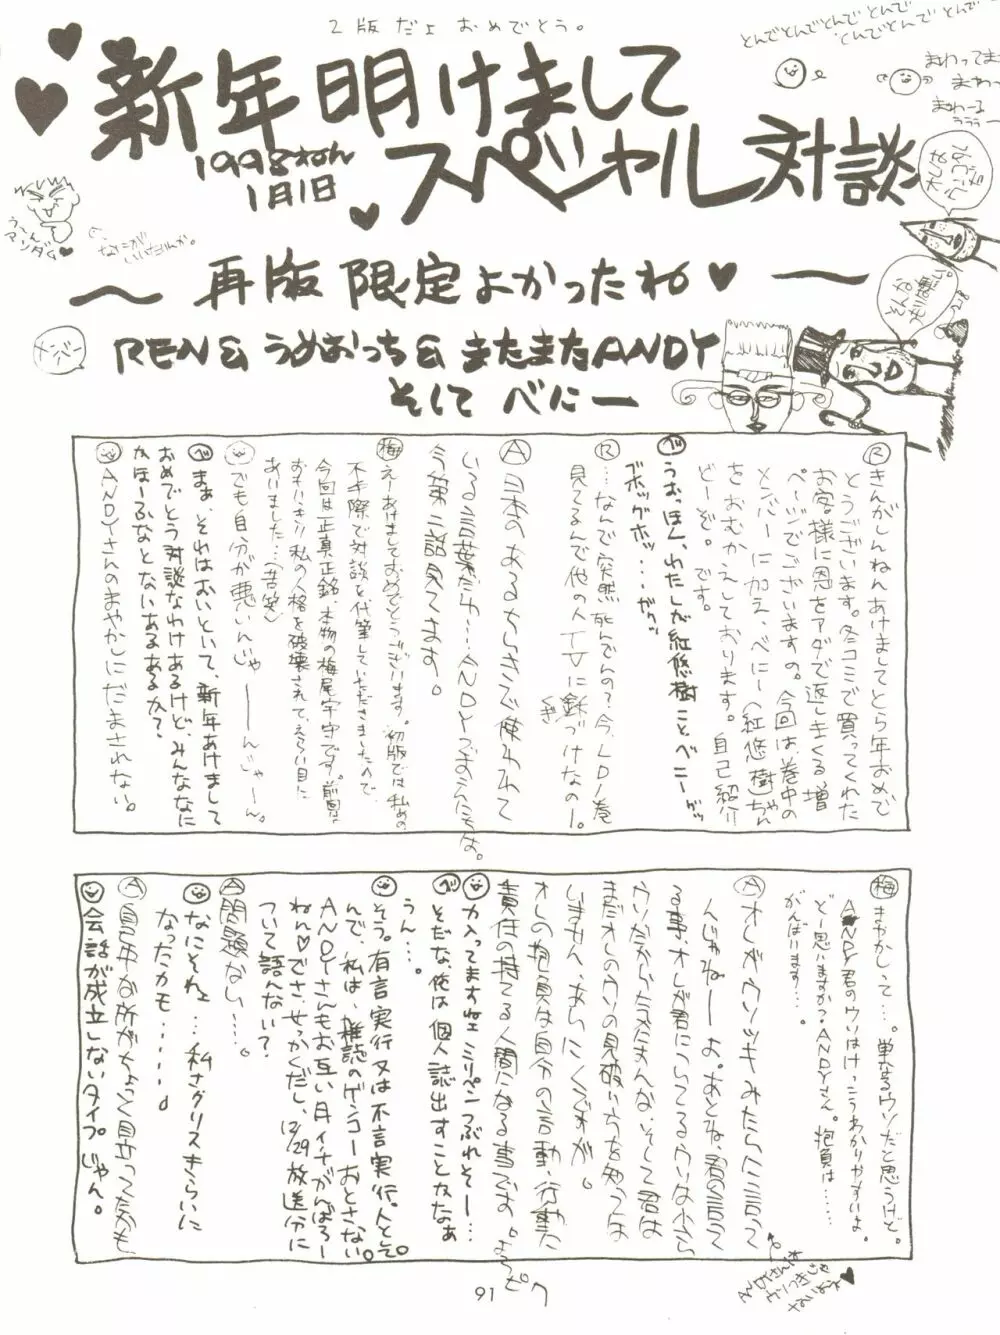 2版だよ おめでとう。
とんでとんでとんで とんで
とんでとんで とんで とんで
まわってまわ
まわっ
まわーる
ラララー
新年明けまして
1998ねん
1月1日
スペシャル対談
う〜ん
マンダム♥
なにが
いいたいんだか。
〜 再版限定よかったね♥ 〜
メンバー
REN& うめおっち& またまたANDY
そして べにー
そんな
Ⓡきんがしんねんあけましてとら年おめで
とうございます。冬コミで買ってくれた
お客様に恩をアダで返しまくる増
ページでございますの。今回は巻中の
メンバーに加え、べにー(紅悠樹)ちゃん
をおむかえしております。自己紹介
どーぞ。です。
べうおっほん、わたしが紅悠樹ことベニーゲッ
ボッグホッ…ガクッ
Ⓡ…なんで突然死んでんの?今、LD1巻
見てるんで他の人TVに釘づけなのー。
Ⓐ日本のあるちいきで使われて
いる言葉だわ…ANDYおぼえたもよ。
今第二話見てます。
梅えーあけましておめでとうございます。初版では私めの
不手際で対談を代筆していただきましたので、
今回は正真正銘、本物の梅尾宇宙です。前回は
おもいキリ私の人格を破壊されて、えらい目に
あいました…(苦笑)
でも自分が悪いんじゃーーんじゃーん。
べまぁ、それはおいといて、新年あけまして
おめでとう対談なわけあるけど、みんななに
かほーふなとないあるあるか?
ANDYさんのまやかしにだまされない。
梅まやかしって…。単なるウソだと思うけど。
ANDY君のウソはけっこうわかりやすいよ。
どー思いますか?ANDYさん。抱負は……
がんばいます…。
Ⓐオレがウソツキみたいに言って
んじゃねーーよ。あとね、君の言って
る事、オレが君についてるウソは少ら
ウソだから気ぃすんな、そして君は
まだオレのウソの見破り方を知っては
いません、あしにくですが。
オレの抱負は自分の言動・行動に
責任の持てる人間になる事です。よろピク
力入ってますねェ ミリペンつぶれそー…
べそだな、俺は個人誌出すことかなぁ
うん…。
そう。有言実行又は不言実行。んとぞ。
んで、私は、雑誌のゲンコーおとさない。
ANDYさんもお互い月イチがんばろー
ねん♡でさ、せっかくだし、12/29放送分に
ついて語んない?
Ⓐ問題ない…。
なにそれェ…私さグリスきらいに
なったカモ……。
Ⓐ自年な所がちょっと目立ってたかも
会話が成立しないタイプじゃん。
91